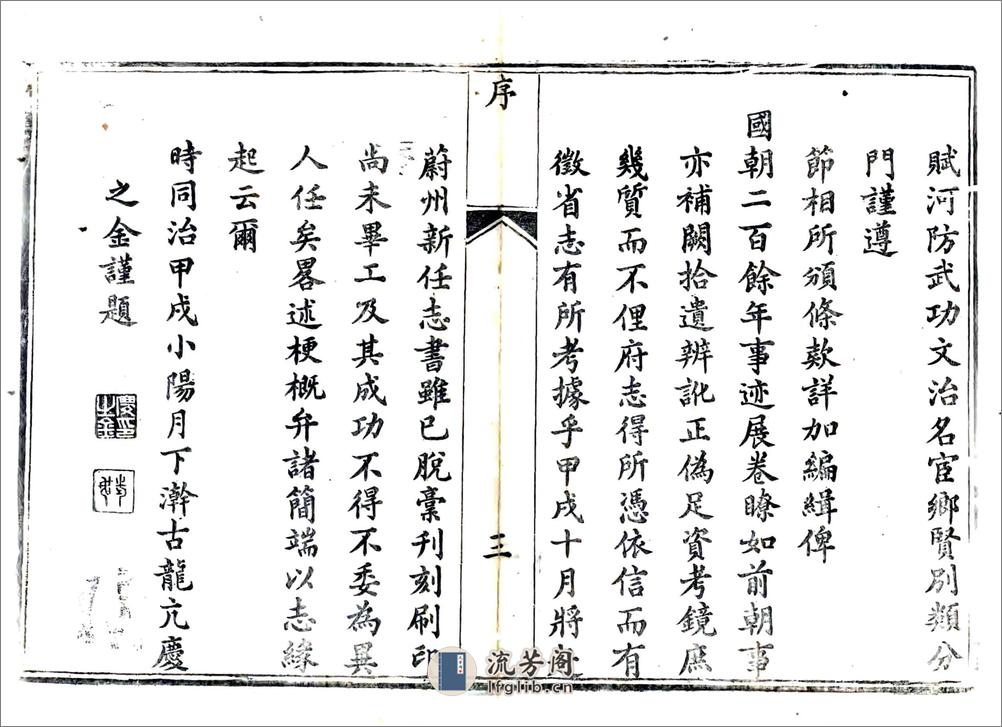 賦河防武功文治名宦鄉賢別類分
門謹遵
節相所頒條款詳加編緝俾
國朝二百餘年事迹展卷瞭如前朝事
亦補闕拾遺辨訛正偽足資考鏡庶
幾質而不俚府志得所憑依信而有
徵省志有所考據乎甲戌十月將
序
三
蔚州新任志書雖已脫稾刊刻刷印
尚未畢工及其成功不得不委為異
人任矣畧述梗概弁諸簡端以志緣
起云爾
時同治甲戌小陽月下澣古龍亢慶
之金謹題
流芳阁
lfglib.cn